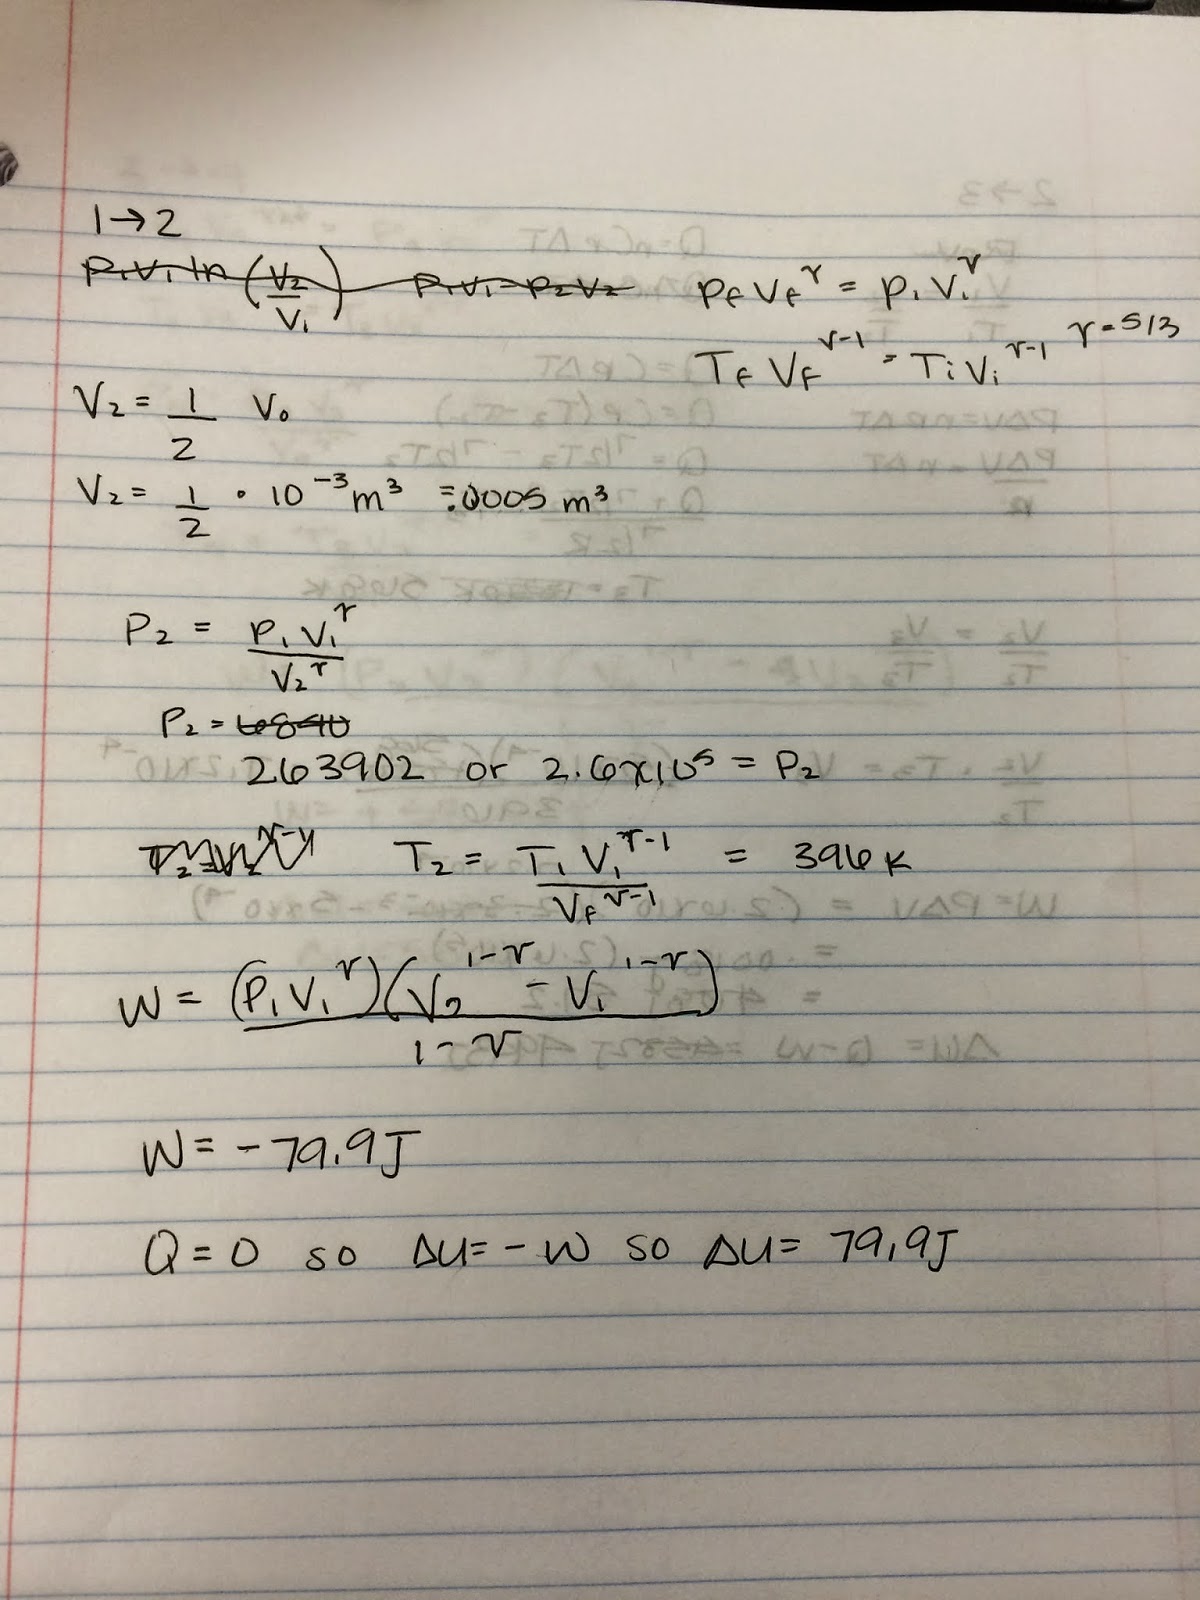 1→2
p₁v₁ ln (v₂/v₁) p₁v₁=p₂v₂ PfVf^γ = P₁V₁^γ
TfVf^γ-1 = TiVi^γ-1 γ=5/3
V₂ = 1/2 V₀
V₂ = 1/2 · 10⁻³m³ = .0005 m³
P₂ = P₁V₁^γ / V₂^γ
P₂ = 6840
263902 or 2.6x10⁵ = P₂
T₂ = T₁V₁^γ-1 / Vf^γ-1 = 396K
W = (P₁V₁^γ)(V₂^1-γ - V₁^1-γ) / 1-γ
W = -79.9J
Q=0 so ΔU=-W so ΔU= 79.9J